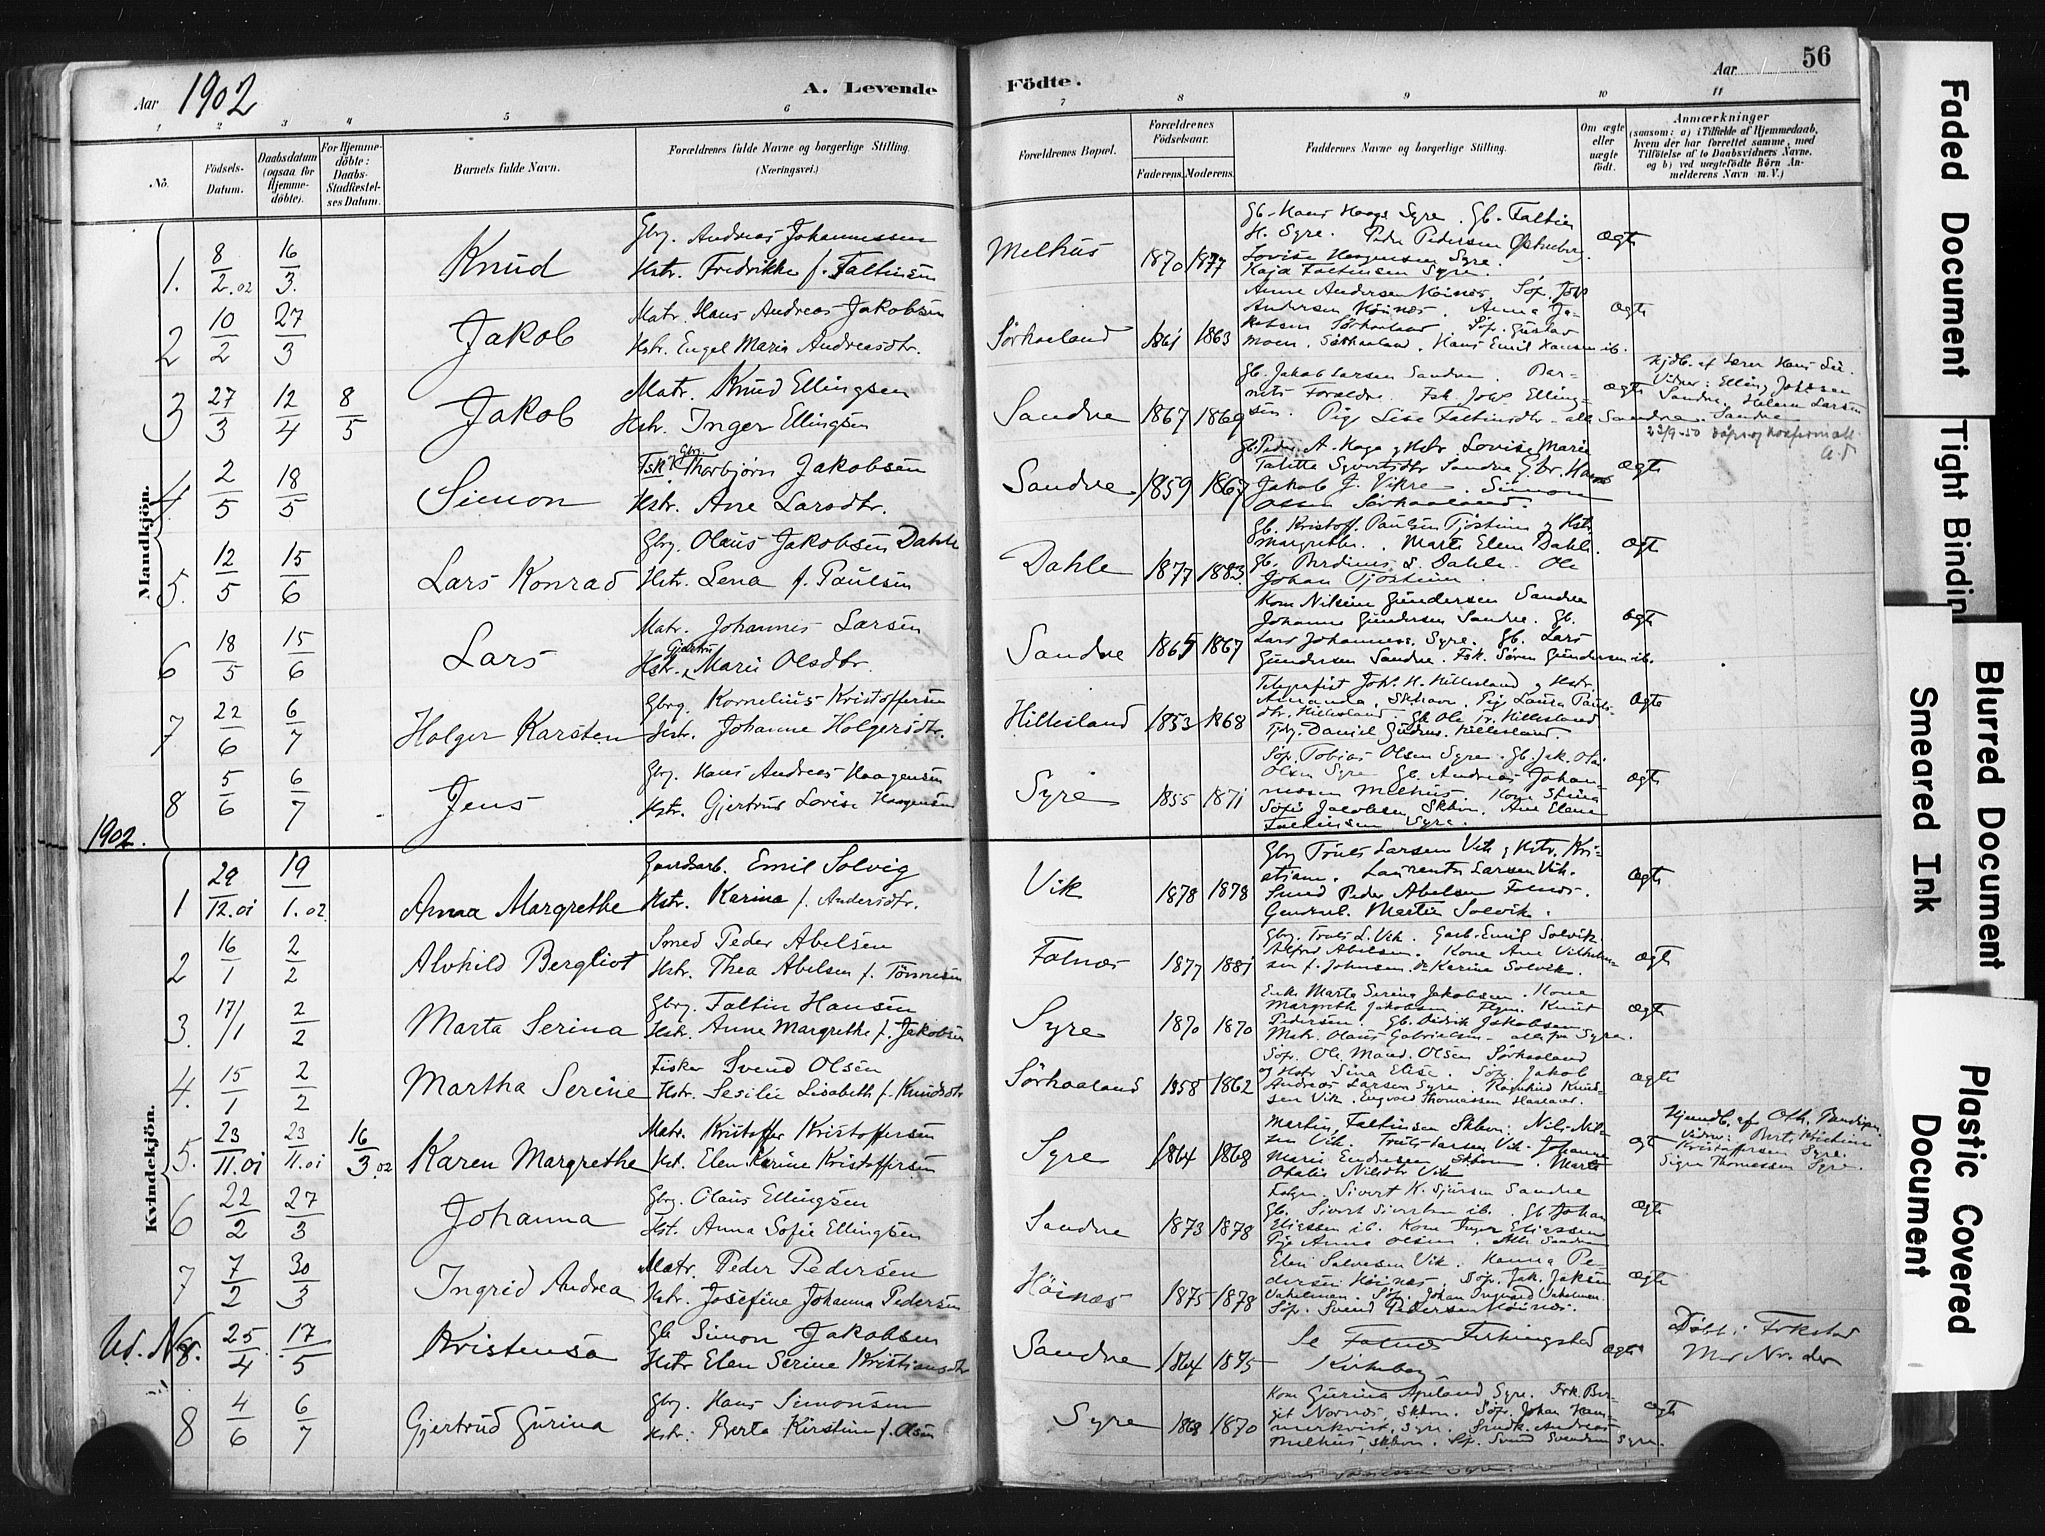 Aar 1902
A. Levende
Födte.
Aar
56
1 2 3 4 5 6 7 8 9 10 11
No.
Födsels-
Datum.
Daabsdatum
(ogsaa for
Hjemme-
döbte).
For Hjemme-
döbte:
Daabs-
Stadfæstel-
ses Datum.
Barnets fulde Navn.
Forældrenes fulde Navne og borgerlige Stilling.
(Næringsvei.)
Forældrenes Bopæl.
Forældrenes
Födselsaar.
Faderens. Moderens.
Faddernes Navne og borgerlige Stilling.
Om ægte
eller
uægte
födt.
Anmærkninger
(saasom: a) i Tilfælde af Hjemmedaab,
hvem der har forrettet samme, med
Tilföielse af to Daabsvidners Navne,
og b) ved uægtefödte Börn An-
melderens Navn m. V.)
Mandkjön.
1. 8/2.02 16/3. Knud
Gbrg. Andreas Johannessen
Hstr. Fredrikke f. Faltinsen
Melhus 1870 1877
Gb. Hans Haags Syre. Gb. Faltin
H. Syre. Peder Pedersen
Lovise Haagensen Syre.
Kaja Faltinsen Syre.
Ægte
2 10/2 27/3 Jakob
Matr. Hans Andreas Jakobsen
Hstr. Engel Maria Andreasdtr.
Sörhaaland 1861 1863
Anne Andersen Höines. Söf. Joh
Andersen Höines. Anna Ja-
kobsen Sörhaaland. Söf. Gustav
moen. Sörhaaland. Hans Emil Hansen ib.
Ægte
3 27/3 12/4 8/5 Jakob
Matr. Knud Ellingsen
Hstr. Inger Ellingsen
Sandve 1867 1869
Gb. Jakob Larsen Sandve. Bar-
nets Forældre. Fsk. Johs Elling-
sen. Pige Lise Faltinsdtr. alle Sandve.
Ægte
Hjdb. af Lærer Hans
Vidner: Elling Johnsen
Sandve. Helene Larsen
Sandve
23/9-50 Daps og Konfirm att.
4. 2/5 18/5 Simon
Fsk. & Gbrg. Thorbjörn Jakobsen
Hstr. Ane Larsdtr.
Sandve 1859 1867
Gb. Peder A. Hage & Hstr. Lovise Marie
Talitta Syvertsdtr Sandve Gbr. Hans
Jakob J. Vikre. Simon
Olsen Sörhaaland.
Ægte
5. 12/5 15/6 Lars Konrad
Gbrg. Olaus Jakobsen Dahle
Hstr. Lena f. Paulsen
Dahle 1877 1883
Gb. Kristoff. Paulsen Tjösheim & Hstr
Margrethe. Marta Elene Dahle.
Gb. Berdines L. Dahle. Ole
Johan Tjösheim.
Ægte
6 18/5 15/6 Lars
Matr. Johannes Larsen
Hstr. Gjertrus Marie Olsdtr.
Sandve 1865 1867
Kone Nilsine Gundersen Sandve
Johanne Gundersen Sandve. Gb.
Lars Johanness. Syre. Gb. Lars
Gundersen Sandve. Fsk. Sören Gundersen ib.
Ægte
7 22/6 6/7 Holger Karsten
Gbrg. Kornelius Kristoffersen
Hstr. Johanne Holgersdtr.
Hillesland 1853 1868
Telegrafist Joh. H. Hillesland & Hstr
Amanda, Skhavn. Pig Laura Pauls-
dtr. Hillesland. Gb Ole Jr. Hillesland
Daniel Gudms. Hillesland.
Ægte
8 5/6 6/7 Jens
Gbrg. Hans Andreas Haagensen
Hstr. Gjertrus Lovise Haagensen
Syre 1855 1871
Söf. Tobias Olsen Syre. Gb. Jak. Ola
Olsen Syre Gb. Andreas Johan-
nessen Melhus. Kone Stina
Sofie Jacobsen Skhvn. Ane Elene
Faltinsen Syre.
Ægte
1902.
Kvindekjön.
1 29/12.01 19/1.02 Anna Margrethe
Gaardarb. Emil Solvig
Hstr. Karina f. Andersdtr.
Vik 1878 1878
Gbrg Truls Larsen Vik & Hstr. Kri-
stiane. Laurents Larsen Vik.
Smed Peder Abelsen Falnes.
Martin Solvik.
Ægte
2 16/1 2/2 Alvhild Bergliot
Smed Peder Abelsen
Hstr. Thea Abelsen f. Tönnesen
Falnes 1877 1881
Gbrg. Truls L. Vik. Gaarb. Emil Solvik
Alfred Abelsen. Kone Ane Vilhelm-
sen f. Johnsen. & Karine Solvik.
Ægte
3. 17/1 2/2 Marta Serina
Gbrg. Faltin Hansen
Hstr. Anne Margrethe f. Jakobsen
Syre 1870 1870
Enke Marta Serina Jakobsen. Kone
Margreth Jakobsen. Knut
Pedersen. Gb. Didrik Jakobsen
Matr. Olaus Gabrielsen. alle fra Syre.
Ægte
4. 15/1 2/2 Martha Serine
Fisker Svend Olsen
Hstr. Sesilie Lisabeth f. Knudsdtr
Sörhaaland 1858 1862
Söf. Ole Maud. Olsen Sörhaaland
og Hstr Sina Elise. Söf. Jakob
Andreas Larsen Syre. Ragnhild Knud-
sen Vik. Engvald Thomassen
Ægte
5. 23/11.01 23/11.01 16/3.02 Karen Margrethe
Matr. Kristoffer Kristoffersen
Hst. Elen Karine Kristoffersen
Syre 1864 1868
Martin Faltinsen Skhvn. Nils Nil-
sen Vik. Truls Larsen Vik. Johanne
Marie Endresen Skhvn. Marta
Otalie Nilsdtr Vik
Ægt
Hjemdb. af Oth.
Vidner: Berte Kristine
Kristoffersen Syre.
Signe Thomassen Syre.
6 22/2 27/3 Johanna
Gbrg. Olaus Ellingsen
Hst. Anna Sofie Ellingsen
Sandve 1873 1878
Sivert K. Sjursen Sandve
Gb. Sivert Sivertsen ib. Gb Johan
Eliassen ib. Kone Inger Eliassen
Pige Anne Olsen. Alle Sandve
Ægte
7 7/2 30/3 Ingrid Andrea
Matr. Peder Pedersen
Hstr. Josefine Johanna Pedersen
Höines 1875 1878
Elen Salvesen Vik. Hanna Pe-
dersen Höines. Söf. Jak. Jaksen
Vakelman. Söf. Johan Ingvald Vakelman.
Söf. Svend Pedersen Höines.
Ægte
Ud. Nr. 8. 25/4. 17/5 Kristense
Gb Simon Jakobsen
Hstr Elen Serine Kristiansdtr
Sandve 1864 1875
Se Falnes Ferkingstad
Kirkebog
Ægte
Döbt i Frkstad
8 4/6 6/7 Gjertrud Gurina
Gbrg. Hans Simonsen
Hstr. Berta Kirstine f. Olsen
Syre 1868 1870
Kone Gurina Apeland Syre. Frk. Ber-
git Nornes, Skhvn. Söf. Johan Ham-
merkvist, Syre. Smdk. Andreas
Melhus, Skhvn. Sf. Svend Svendsen Syre.
Ægte
Faded Document
Tight Bindin
Blurred Document
Smeared Ink
Plastic Covered
Document